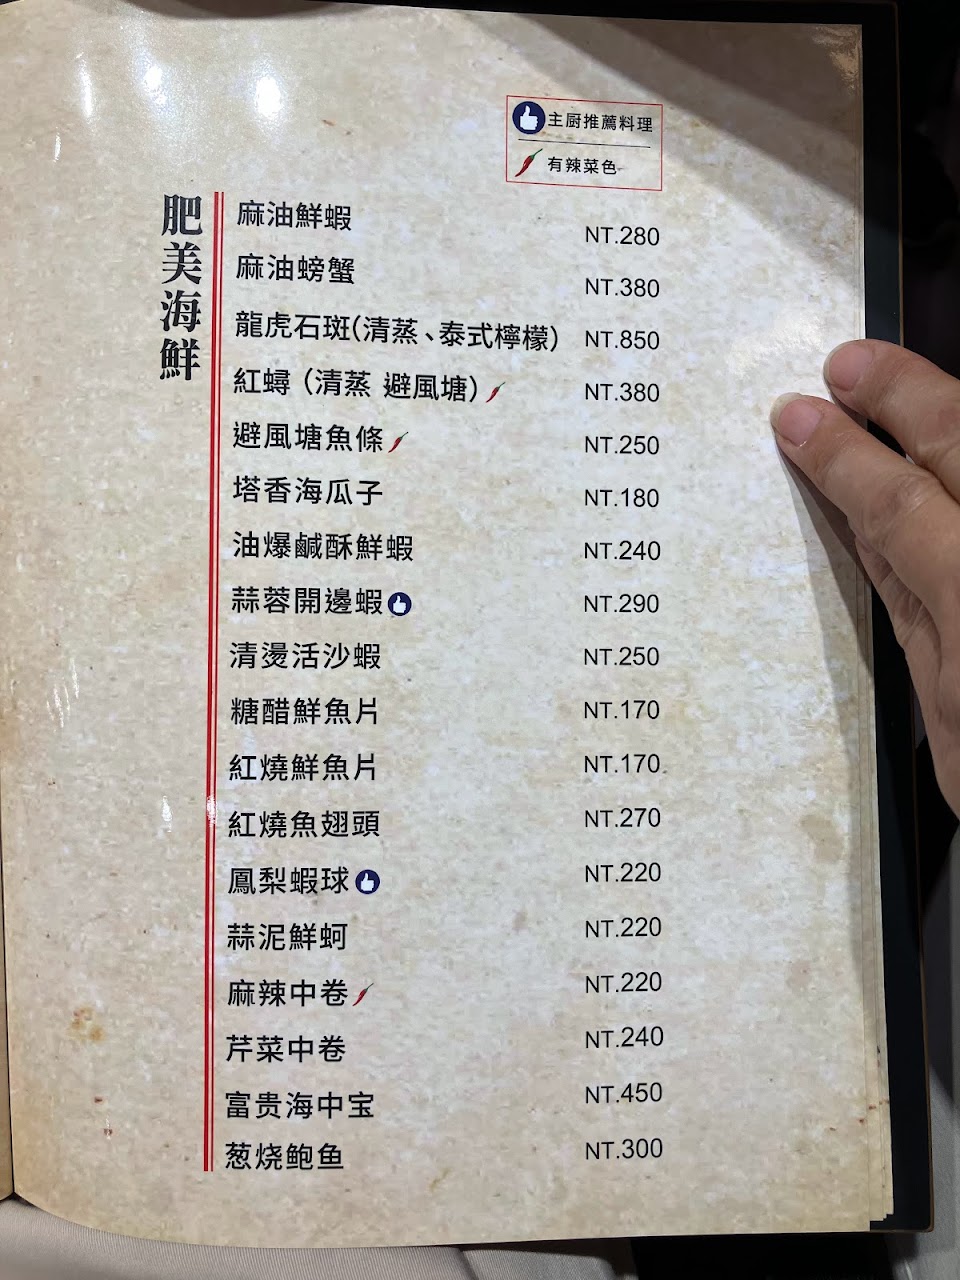 主廚推薦料理
有辣菜色
肥美海鮮
麻油鮮蝦 NT.280
麻油螃蟹 NT.380
龍虎石斑(清蒸、泰式檸檬) NT.850
紅蟳 (清蒸 避風塘) NT.380
避風塘魚條 NT.250
塔香海瓜子 NT.180
油爆鹹酥鮮蝦 NT.240
蒜蓉開邊蝦 NT.290
清燙活沙蝦 NT.250
糖醋鮮魚片 NT.170
紅燒鮮魚片 NT.170
紅燒魚翅頭 NT.270
鳳梨蝦球 NT.220
蒜泥鮮蚵 NT.220
麻辣中卷 NT.220
芹菜中卷 NT.240
富贵海中宝 NT.450
葱烧鲍鱼 NT.300